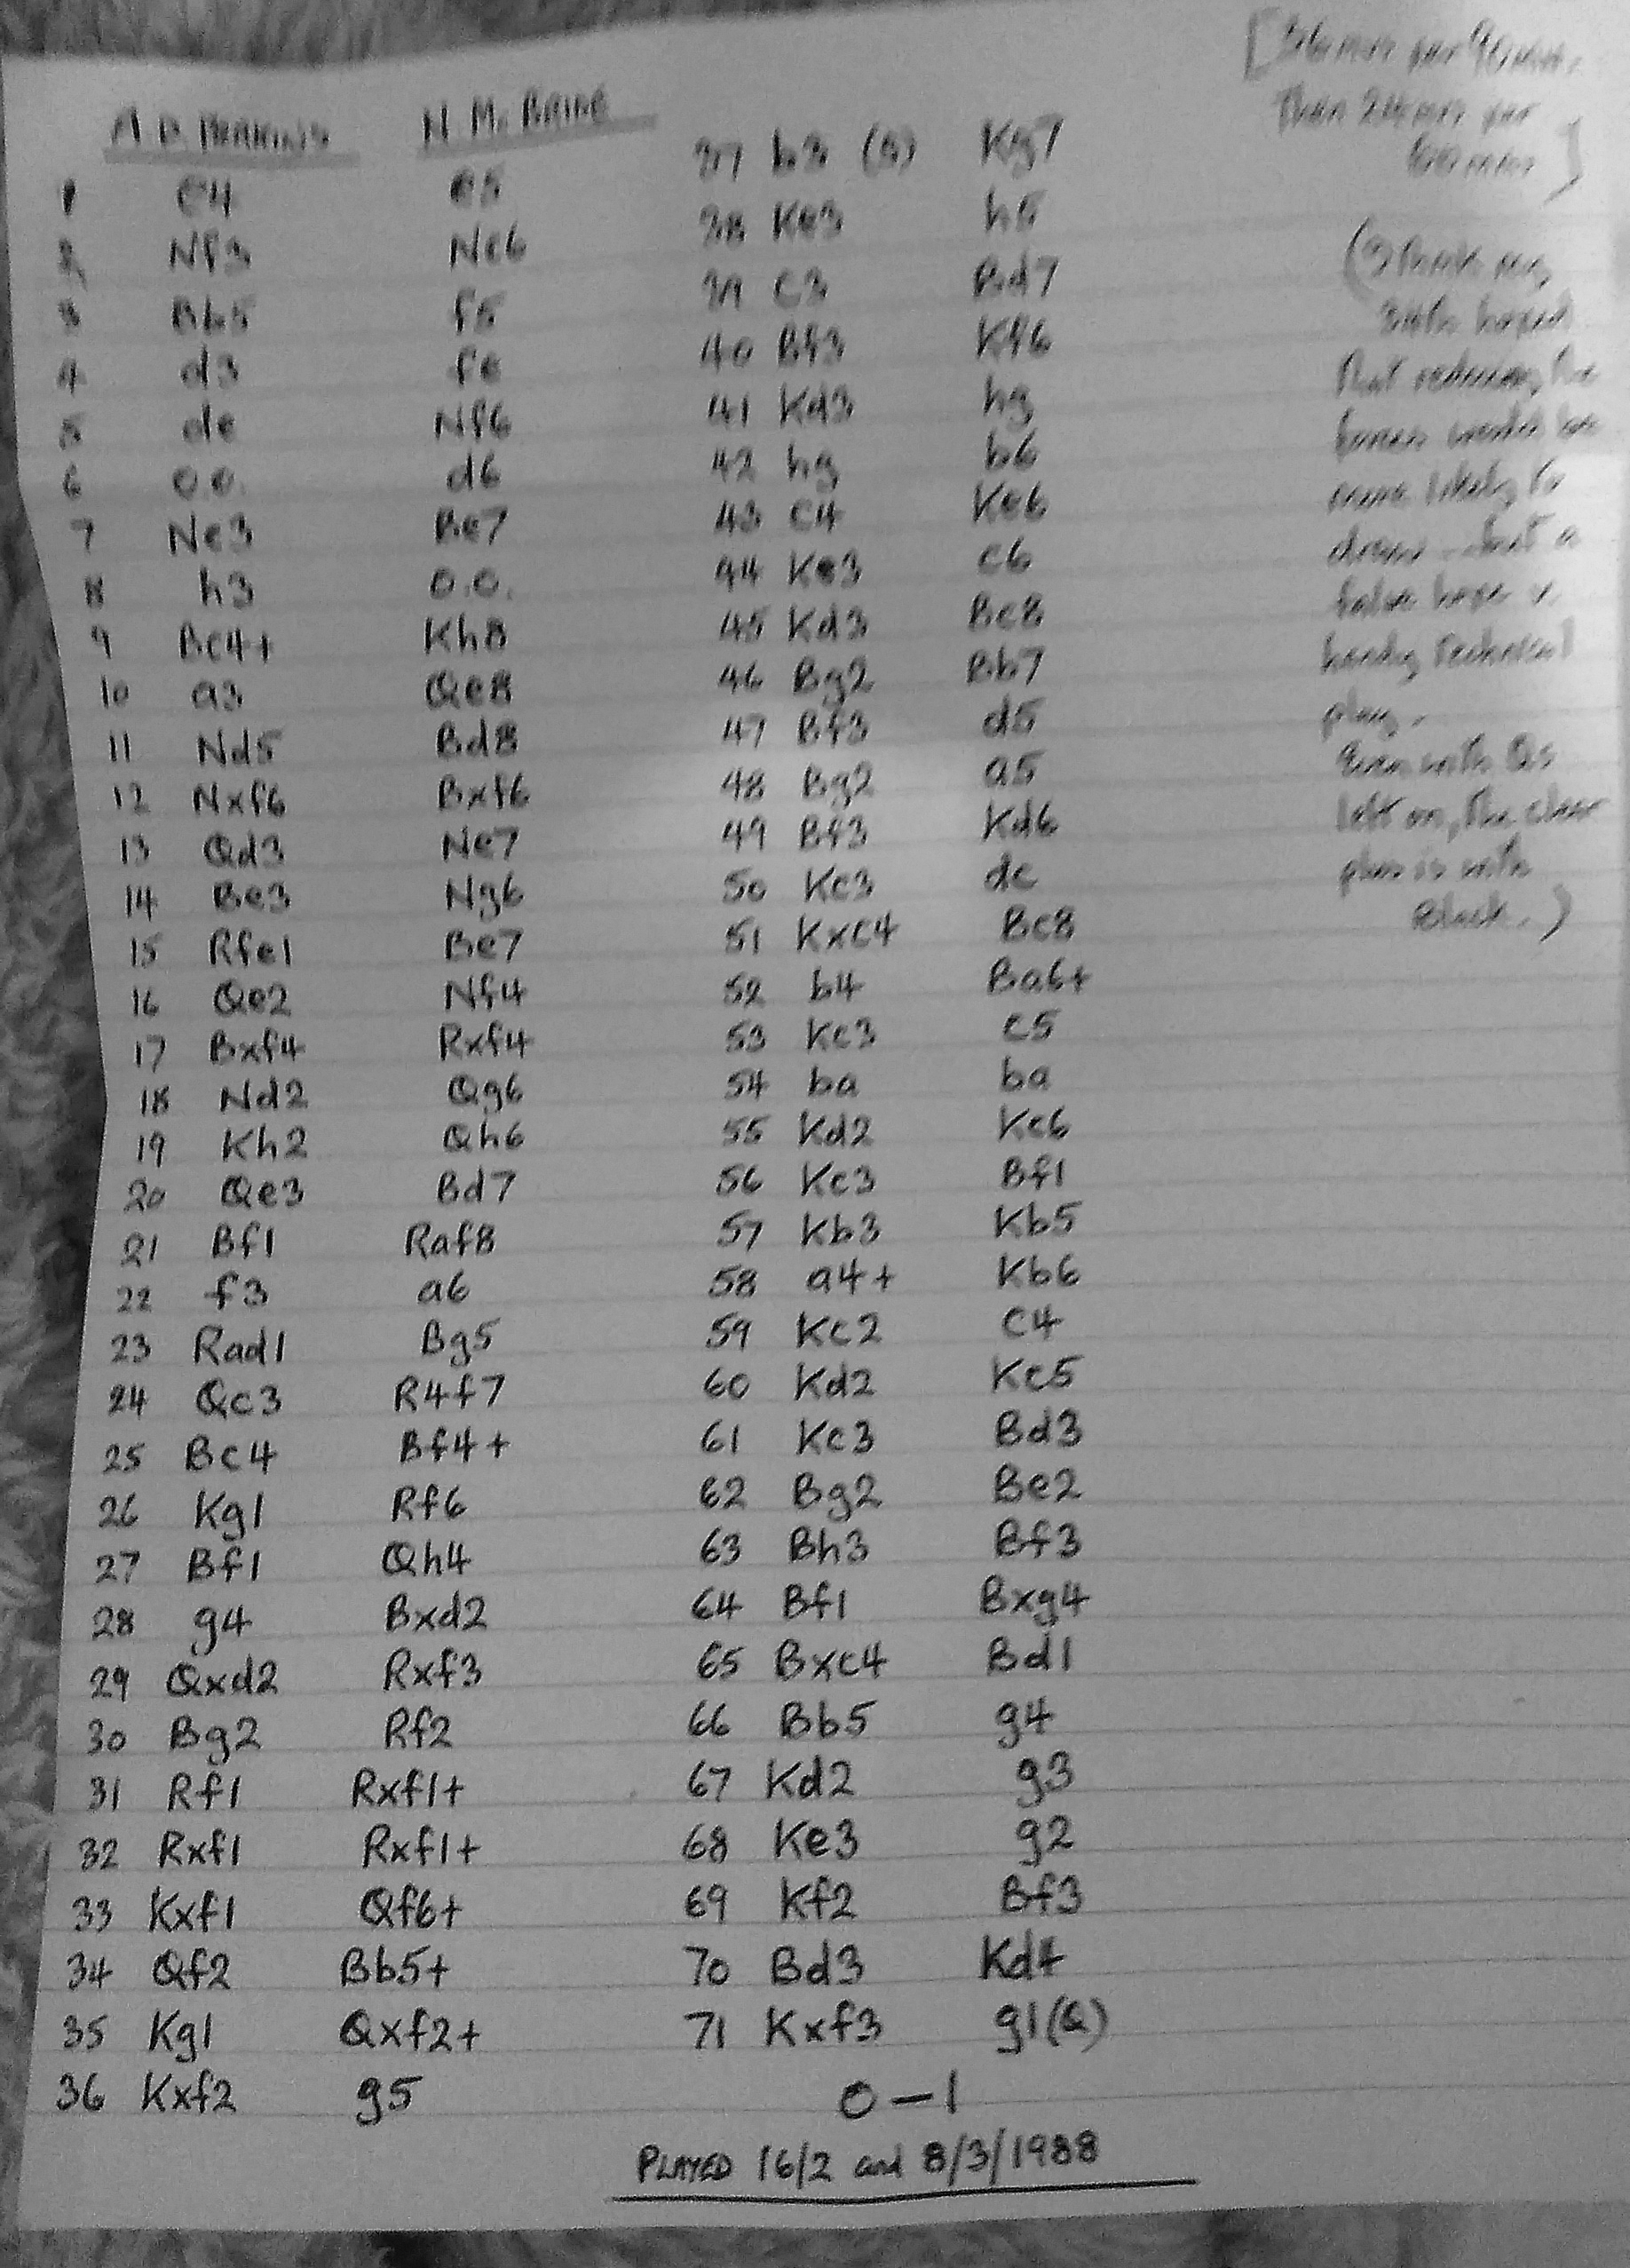 N. McBRIDE
1 e4 e5
2 Nf3 Nc6
3 Bb5 f5
4 d3 fe
5 de Nf6
6 o.o. d6
7 Nc3 Be7
8 h3 o.o.
9 Bc4+ Kh8
10 a3 Qe8
11 Nd5 Bd8
12 Nxf6 Bxf6
13 Qd3 Ne7
14 Be3 Ng6
15 Rfe1 Be7
16 Qe2 Nf4
17 Bxf4 Rxf4
18 Nd2 Qg6
19 Kh2 Qh6
20 Qe3 Bd7
21 Bf1 Raf8
22 f3 a6
23 Rad1 Bg5
24 Qc3 R4f7
25 Bc4 Bf4+
26 Kg1 Rf6
27 Bf1 Qh4
28 g4 Bxd2
29 Qxd2 Rxf3
30 Bg2 Rf2
31 Rf1 Rxf1+
32 Rxf1 Rxf1+
33 Kxf1 Qf6+
34 Qf2 Bb5+
35 Kg1 Qxf2+
36 Kxf2 g5
37 b3 (s) Kg7
38 Ke3 h5
39 c3 Bd7
40 Bf3 Kf6
41 Kd3 hg
42 hg b6
43 c4 Ke6
44 Ke3 c6
45 Kd3 Bc8
46 Bg2 Bb7
47 Bf3 d5
48 Bg2 a5
49 Bf3 Kd6
50 Kc3 dc
51 Kxc4 Bc8
52 b4 Ba6+
53 Kc3 c5
54 ba ba
55 Kd2 Kc6
56 Kc3 Bf1
57 Kb3 Kb5
58 a4+ Kb6
59 Kc2 c4
60 Kd2 Kc5
61 Kc3 Bd3
62 Bg2 Be2
63 Bh3 Bf3
64 Bf1 Bxg4
65 Bxc4 Bd1
66 Bb5 g4
67 Kd2 g3
68 Ke3 g2
69 Kf2 Bf3
70 Bd3 Kd4
71 Kxf3 g1(Q)
0–1
PLAYED 16/2 and 8/3/1988
[36 mvs per 90 min.
Then 24 mvs per
60 mins]
(I think my
34th hoped
that reducing the
forces would be
more likely to
draw – but a
false hope v.
handy technical
play.
Even with Qs
left on, the clear
plus is with
Black.)